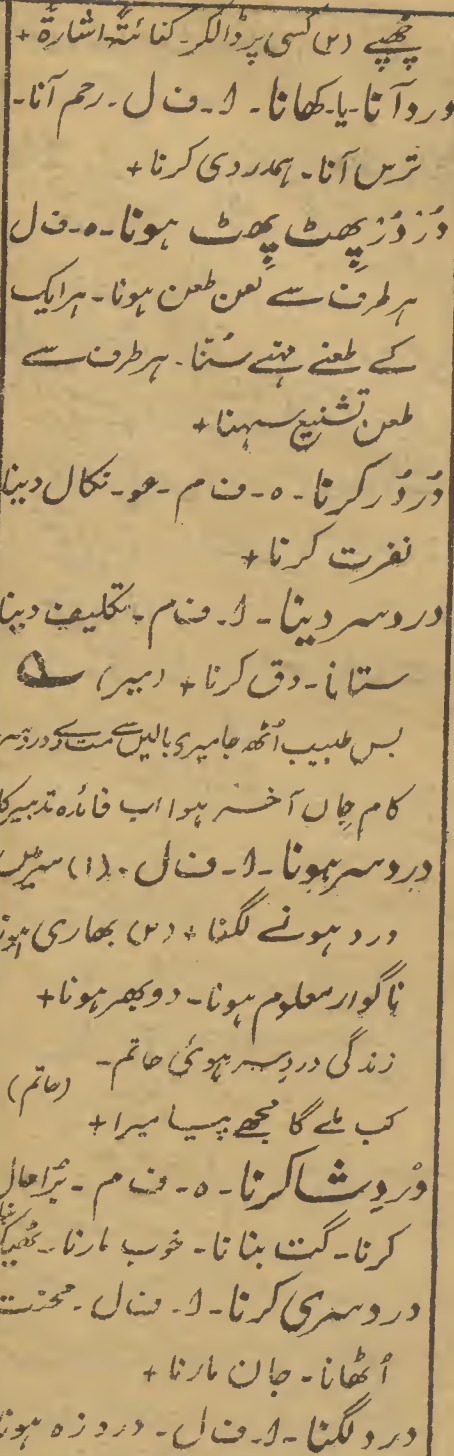 چھپے (۲) کسی پر ڈالکر۔ کنائتہً۔ اشارۃً +
درد آنا۔ یا۔ کھانا۔ ا۔ ف ل۔ رحم آنا۔
ترس آنا۔ ہمدردی کرنا +
دُر دُر پھِٹ پھِٹ ہونا۔ ہ۔ ف ل
ہر طرف سے لعن طعن ہونا۔ ہر ایک
کے طعنے مہنے سُننا۔ ہر طرف سے
طعن تشنیع سہنا +
دُر دُر کرنا۔ ہ۔ ف م۔ عو۔ نکال دینا
نفرت کرنا +
درد سر دینا۔ ا۔ ف م۔ تکلیف دینا
ستانا۔ دق کرنا + (میر) ؎
بس طبیب اُٹھ جا میری بالیں سے مت دے درد سر
کام جاں آخر ہوا اب فائدہ تدبیر کا
درد سر ہونا۔ ا۔ ف ل۔ (۱) سر میں
درد ہونے لگنا + (۲) بھاری ہونا
ناگوار معلوم ہونا۔ دوبھر ہونا +
زندگی دردِ سر ہوئی حاتم۔
(حاتم)
کب ملے گا مجھے پیا میرا +
دُردِشا کرنا۔ ہ۔ ف م۔ بُرا حال
کرنا۔ گت بنانا۔ خوب مارنا۔
درد سری کرنا۔ ا۔ ف ل۔ محنت
اُٹھانا۔ جان مارنا +
درد لگنا۔ ا۔ ف ل۔ درد زہ ہونا